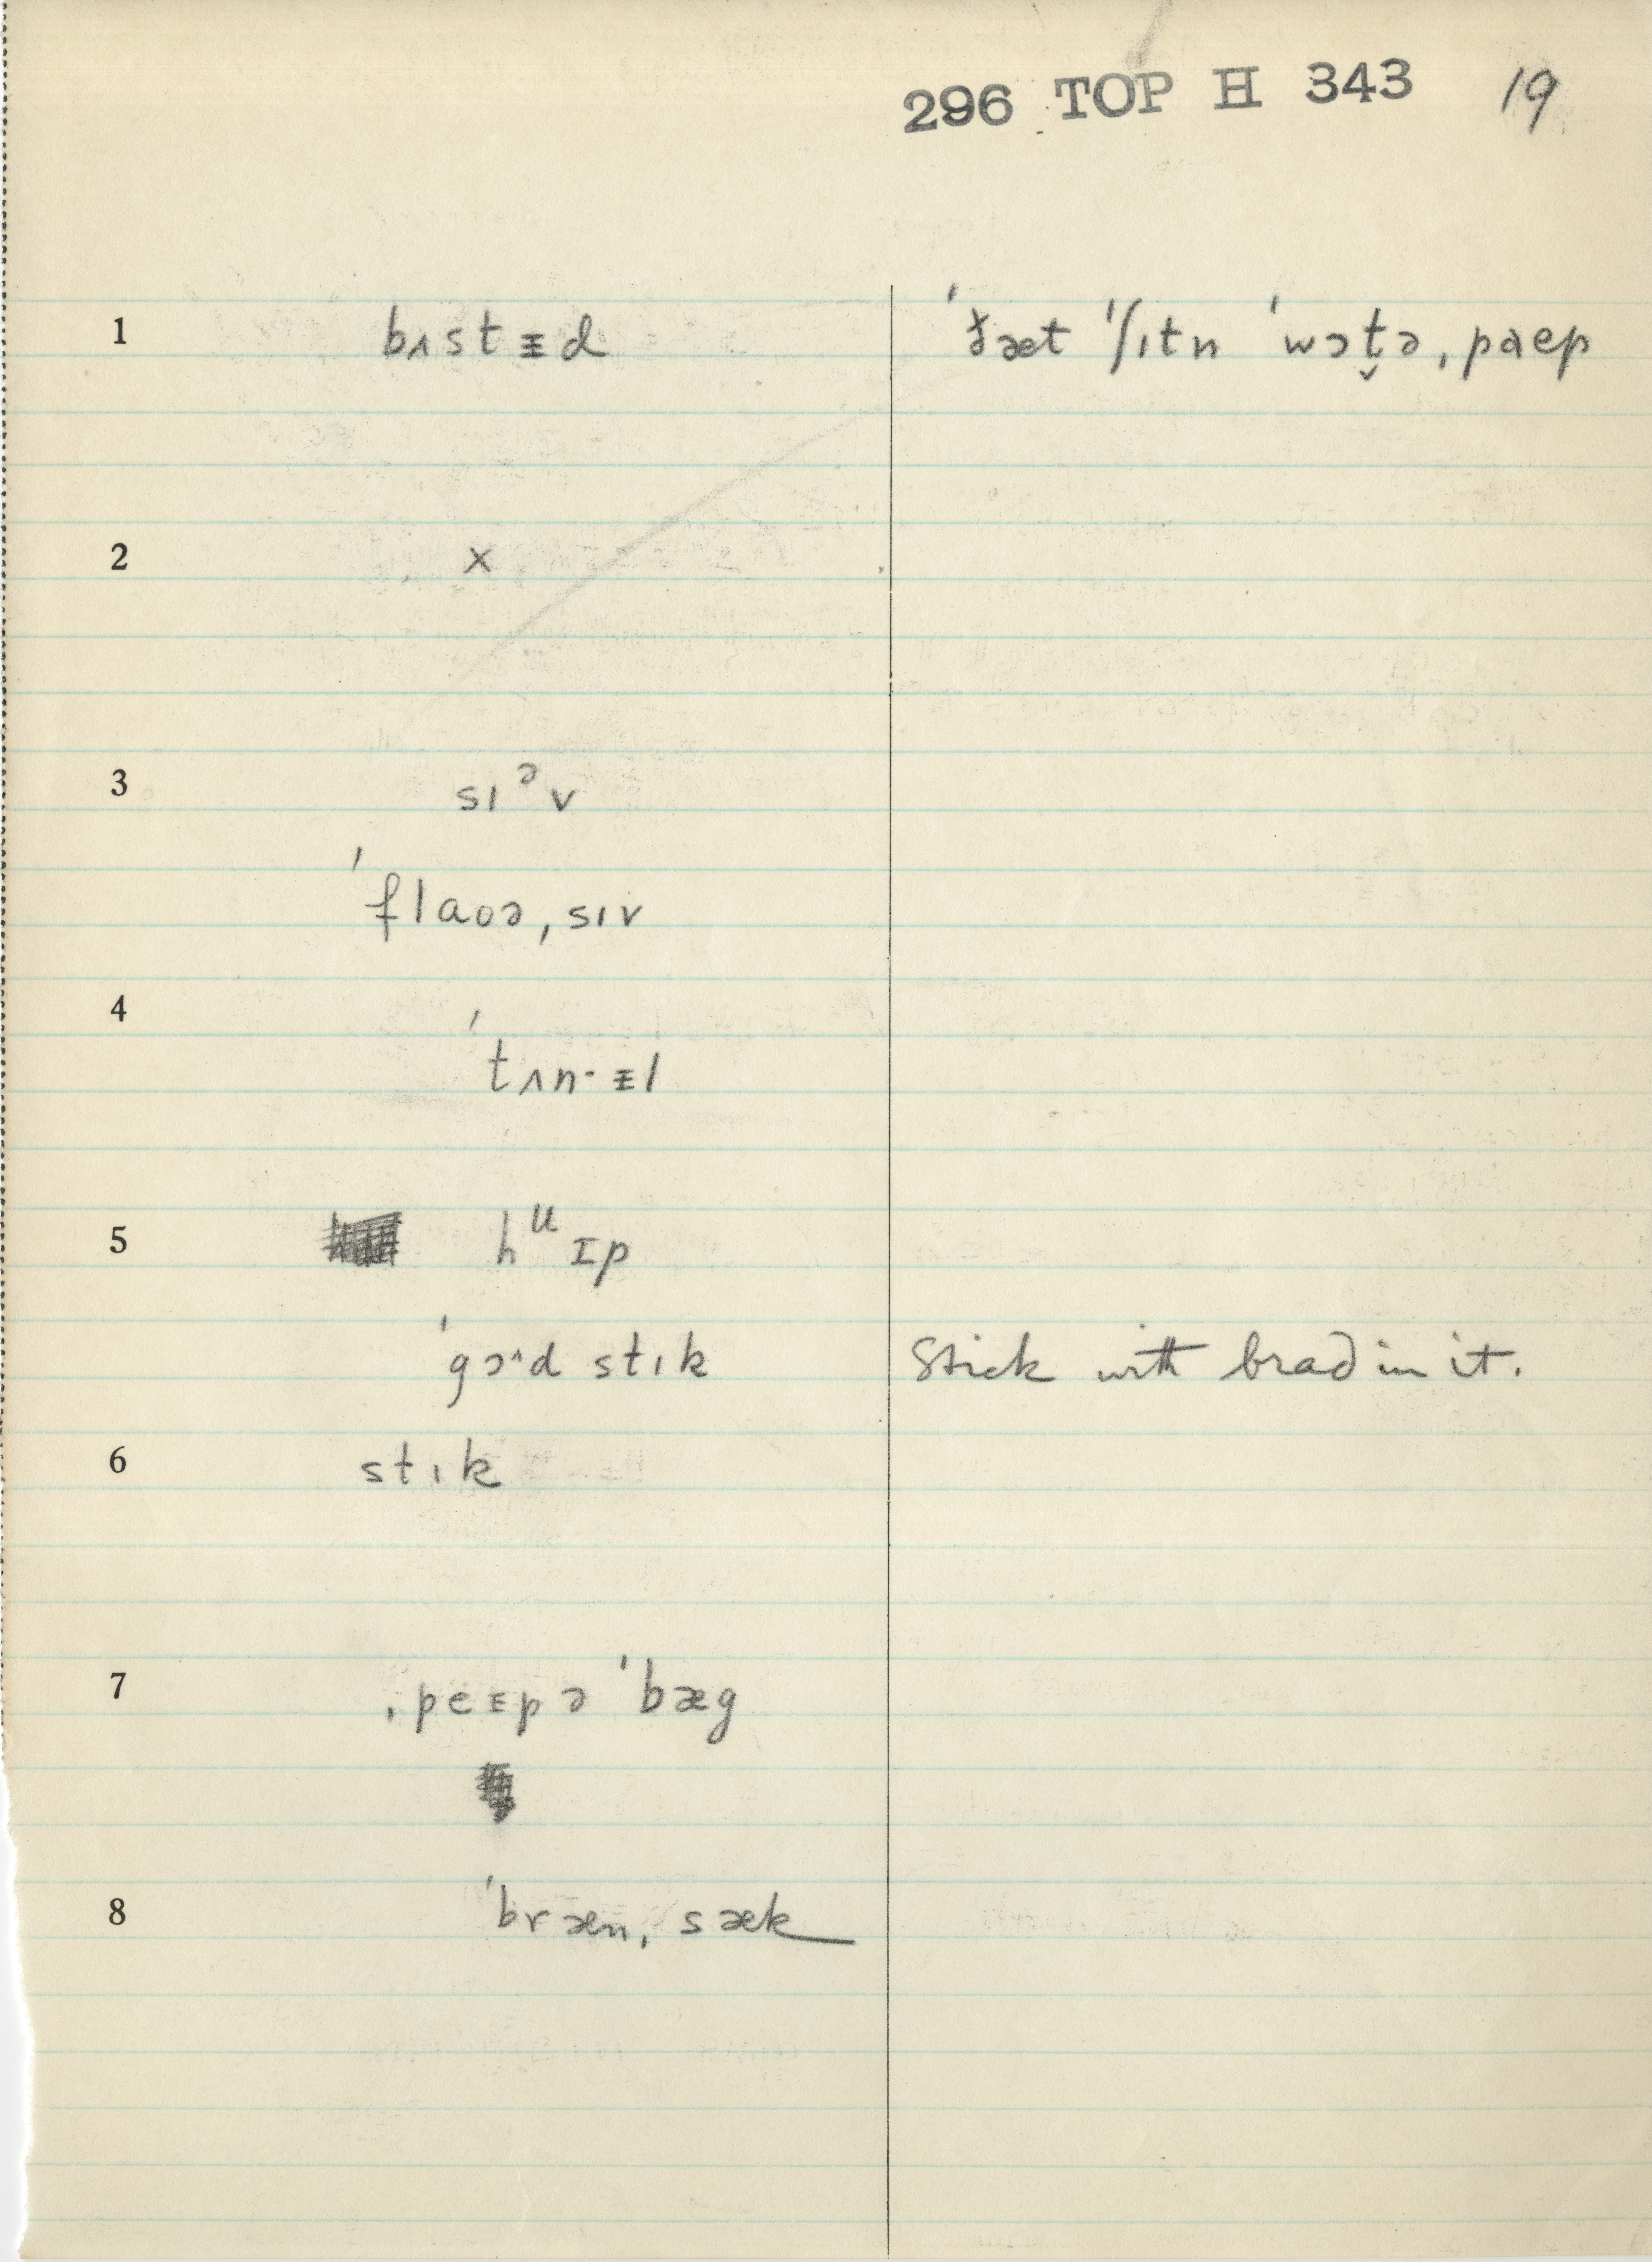 296 TOP H 343 19
1 bʌstᵻd ˈðæt ˈʃɪtn ˈwɔt̬ə ˌpaɛp
2 x
3 sɪᵊv
ˈflaʊə ˌsɪv
4 ˈtʌn·ᵻl
5 hᵘɪp
ˈgɔ^d stɪk Stick with brad in it.
6 stɪk
7 ˌpeᵻpə ˈbæg
8 ˈbræn ˌsæk